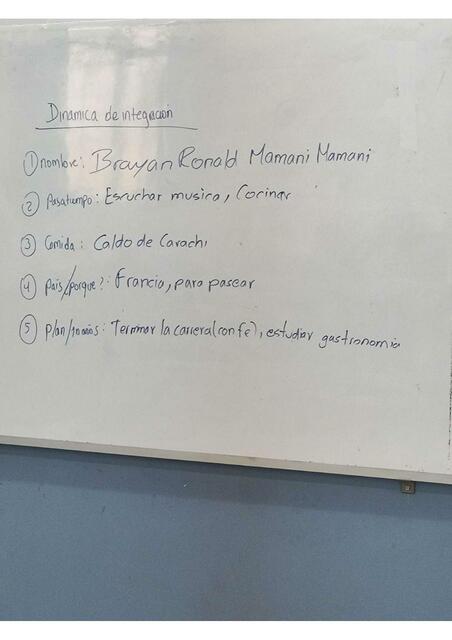 Dinamica de integracion
① nombre: Brayan Ronald Mamani Mamani
② Pasatiempo: Escuchar musica, Cocinar
③ Comida: Caldo de Carachi
④ País/porque?: Francia, para pasear
⑤ Plan/10 años: Terminar la carrera (con fe), estudiar gastronomia